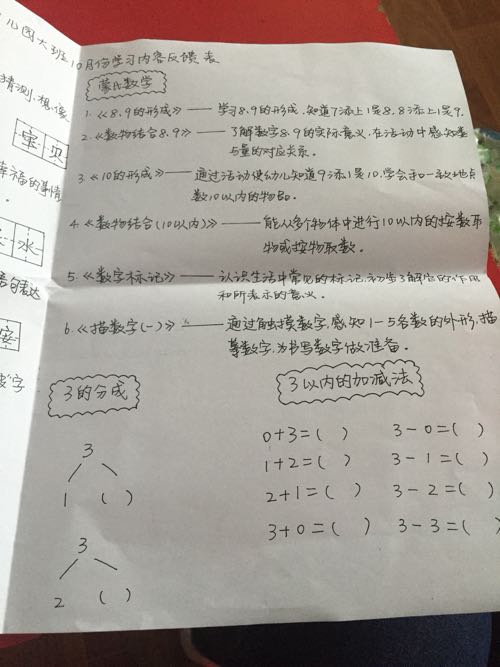 儿园大班10月份学习内容反馈表
蒙氏数学
1.《8、9的形成》——学习8、9的形成,知道7添上1是8,8添上1是9。
2.《数物结合8、9》——了解数字8、9的实际意义,在活动中感知量
与量的对应关系。
3.《10的形成》——通过活动使幼儿知道9添1是10,学会手口一致地点
数10以内的物品。
4.《数物结合(10以内)》——能从多个物体中进行10以内的按数取
物或按物取数。
5.《数字标记》——认识生活中常见的标记,初步了解它的作用
和所表示的意义。
6.《描数字(一)》——通过触摸数字,感知1-5各数的外形,描
摹数字,为书写数字做准备。
3的分成
3
1 ( )
3
2 ( )
3以内的加减法
0+3=( ) 3-0=( )
1+2=( ) 3-1=( )
2+1=( ) 3-2=( )
3+0=( ) 3-3=( )
猜测、想像
宝贝
幸福的事情
水
语句表达
字